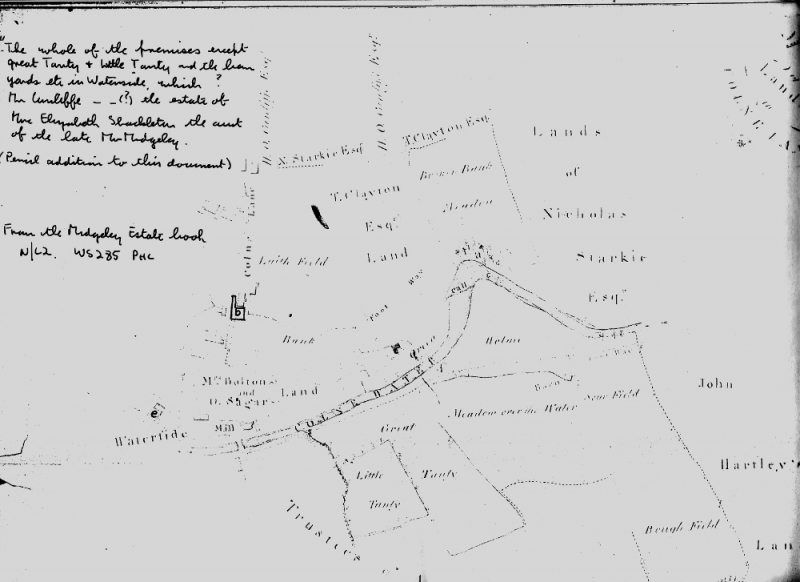 "The whole of the premises except
great Tanty & little Tanty and the
yards etc in Waterside, which ?
Mr Cunliffe _ _ (?) the estate of
Mrs Elizabeth Shackleton the aunt
of the late Mr Midgeley.
(Pencil addition to this document)
From the Midgeley Estate book
N/L2. WS285 PHC
H. O. Cunliffe Esqr
H. O. Cunliffe Esqr
N. Starkie Esqr
T. Clayton Esqr
T. Clayton
Esqr
Land
Meadow
Lands
of
Nicholas
Starkie
Esqr
Land
Colne Lane
Laith Field
Foot Way
Bank
Green
Holm
COLNE WATER
Mrs Bolton's
and
O. Sagar
Land
Mill
Waterside
e
Great
Tanty
Little
Tanty
Meadow over the Water
Barn
New Field
John
Hartley
Lan
Rough Field
Trustees